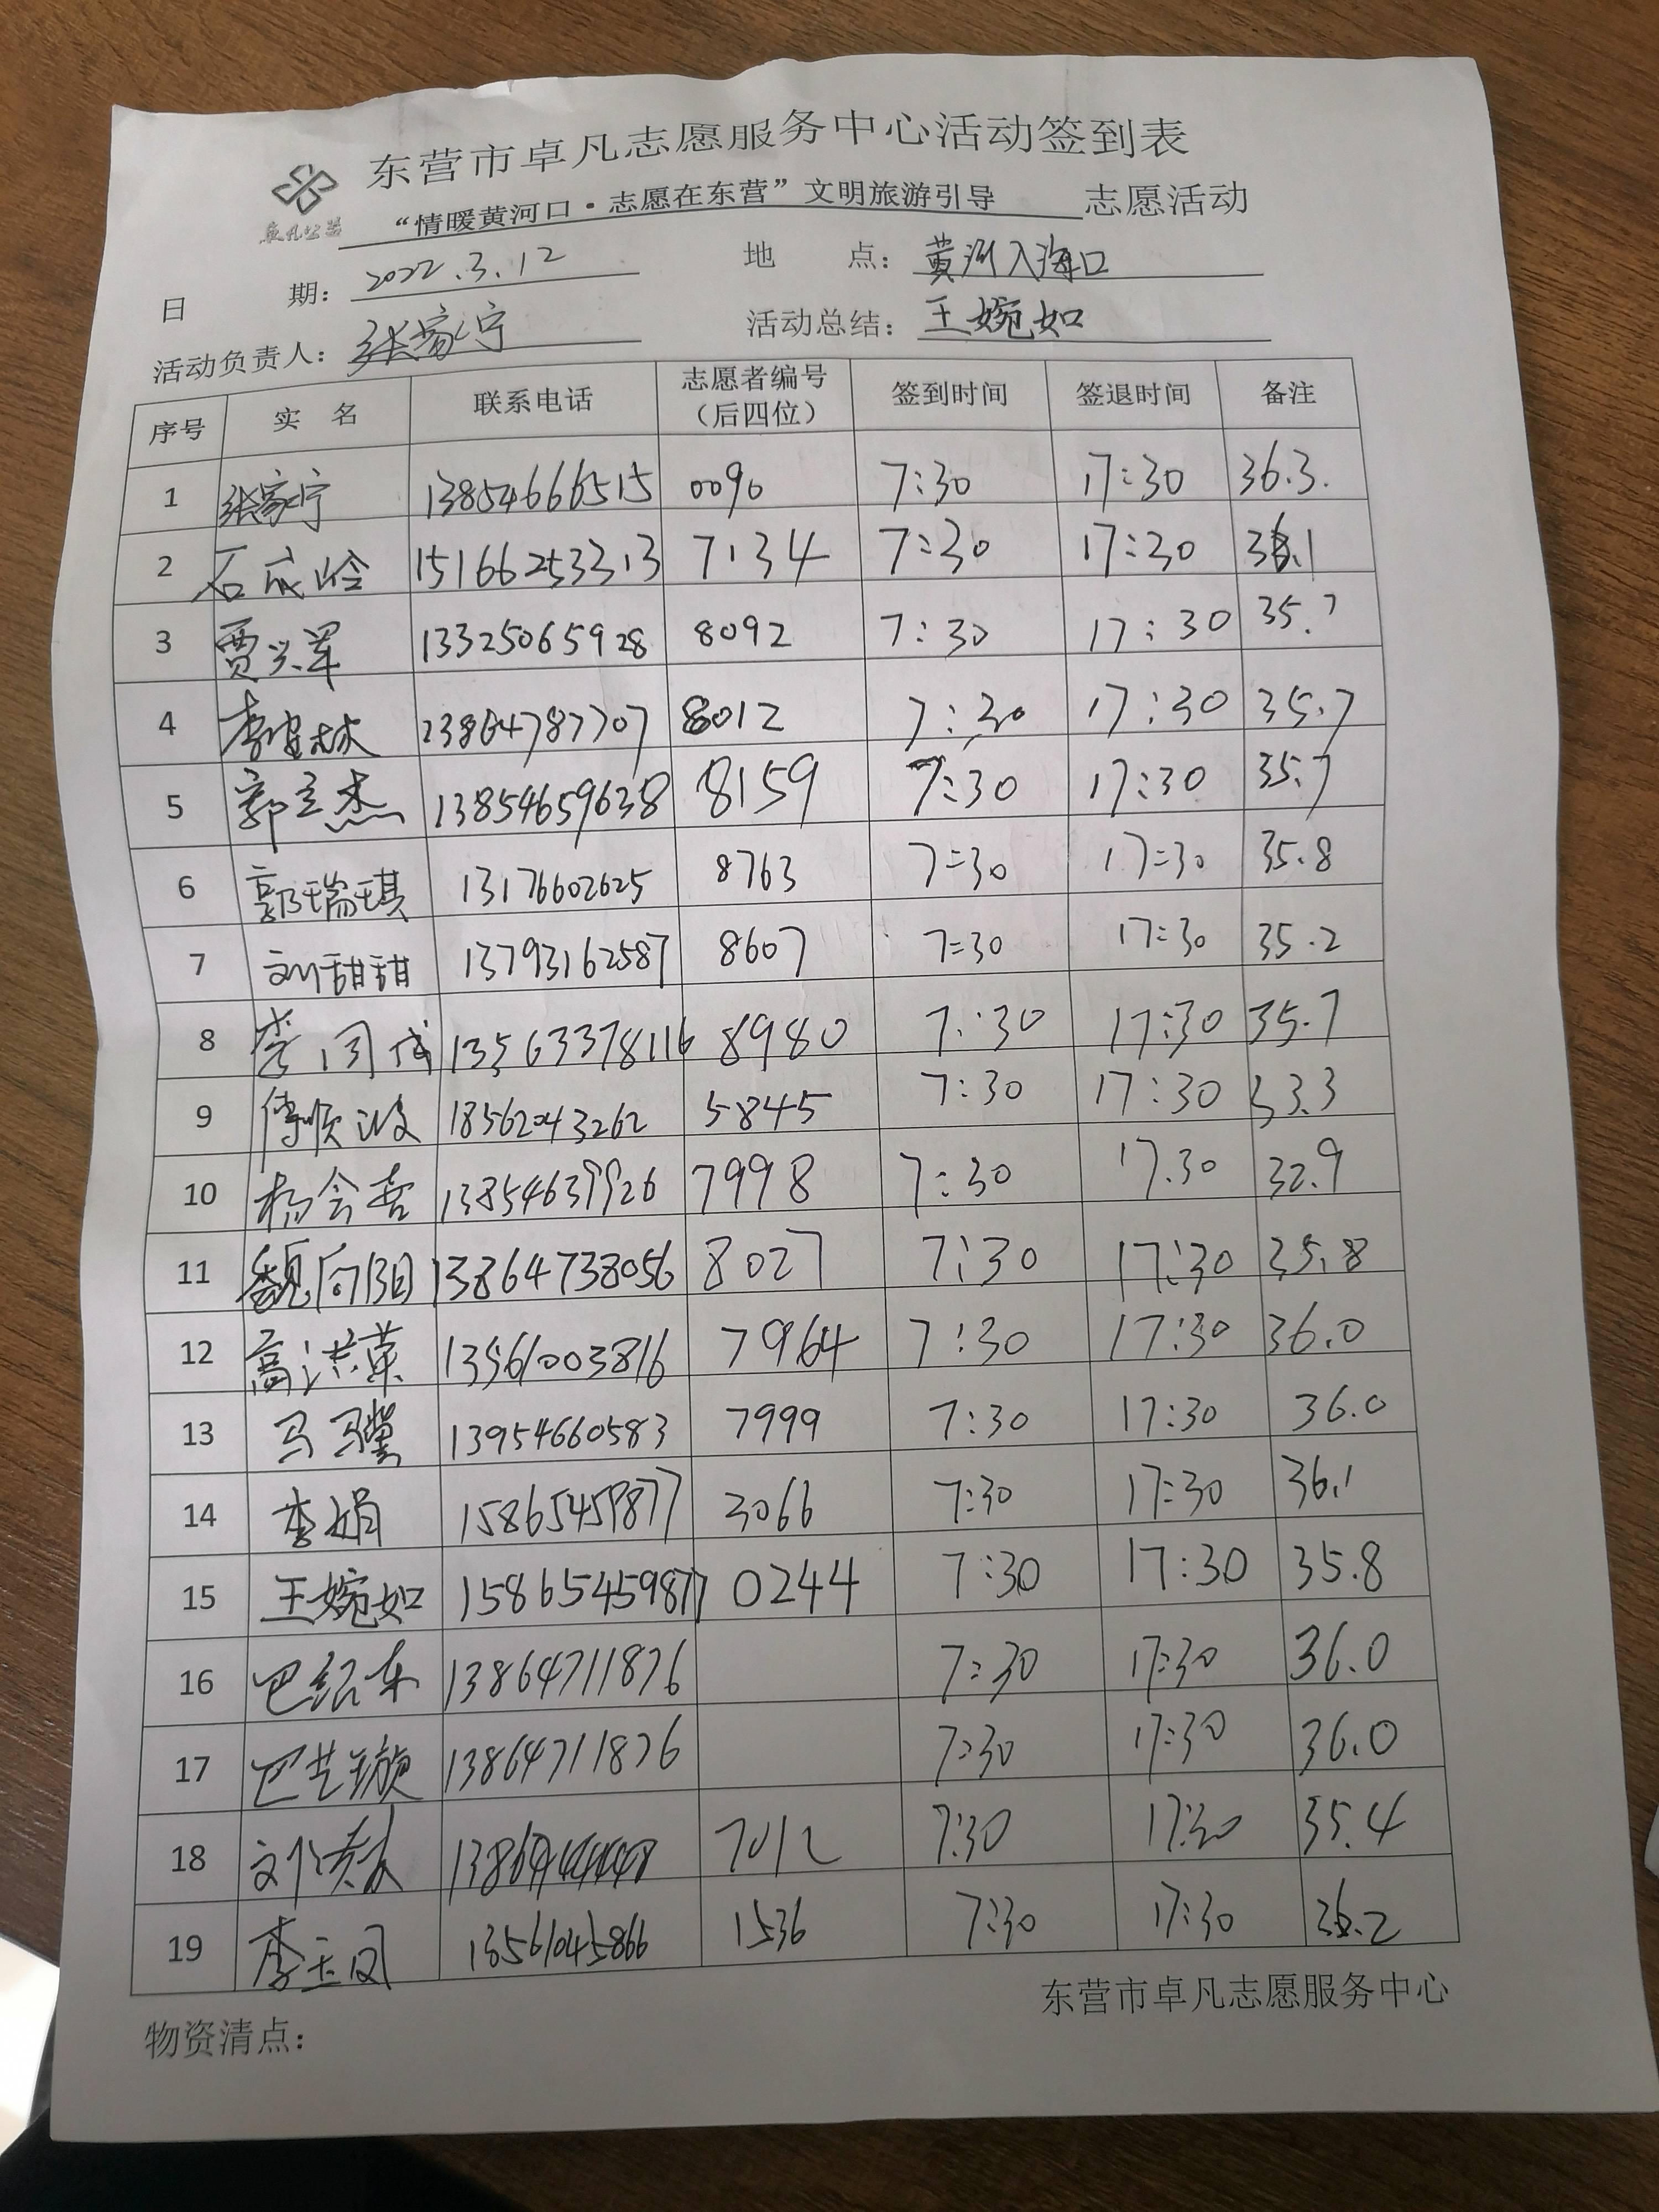 东营市卓凡志愿服务中心活动签到表
卓凡公益 “情暖黄河口·志愿在东营”文明旅游引导 志愿活动
日 期: 2022.3.12 地 点: 黄河入海口
活动负责人: 张家宁 活动总结: 王婉如
序号 实 名 联系电话 志愿者编号（后四位） 签到时间 签退时间 备注
1 张家宁 13854666515 0090 7:30 17:30 36.3.
2 石成岭 15166253313 7134 7:30 17:30 36.1
3 贾兴军 13325065928 8092 7:30 17:30 35.7
4 李建林 13864787707 8012 7:30 17:30 35.7
5 郭立杰 13854659638 8159 7:30 17:30 35.7
6 郭瑞琪 13176602625 8763 7:30 17:30 35.8
7 刘甜甜 13793162587 8607 7:30 17:30 35.2
8 李同成 13563378116 8980 7:30 17:30 35.7
9 傅顺 18562043262 5845 7:30 17:30 33.3
10 杨会 13854639926 7998 7:30 17.30 32.9
11 魏向阳 13864738056 8027 7:30 17:30 35.8
12 高洪英 13561003816 7964 7:30 17:30 36.0
13 马骥 13954660583 7999 7:30 17:30 36.0
14 李娟 15865459877 3066 7:30 17:30 36.1
15 王婉如 15865459877 0244 7:30 17:30 35.8
16 巴绍东 13864711876 7:30 17:30 36.0
17 巴艺璇 13864711876 7:30 17:30 36.0
18 7012 7:30 17:30 35.4
19 李玉凤 13561045866 1536 7:30 17:30 36.2
东营市卓凡志愿服务中心
物资清点: